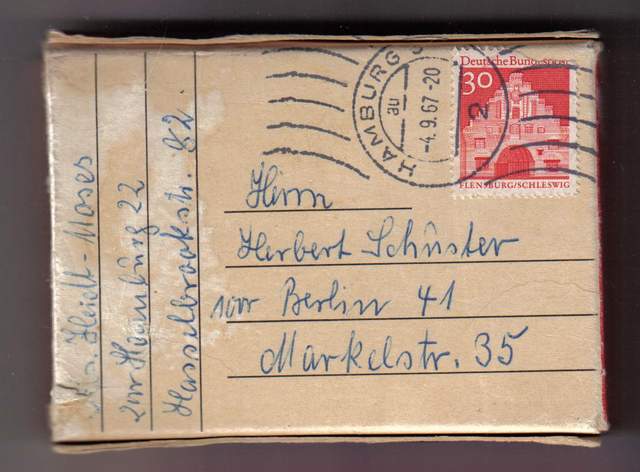 HAMBURG
au
-4.9.67-20
2
Deutsche Bundespost
30
FLENSBURG/SCHLESWIG
Herrn
Herbert Schuster
1000 Berlin 41
Markelstr. 35
Heidt-Moses
2000 Hamburg 22
Hasselbrookstr. 82.